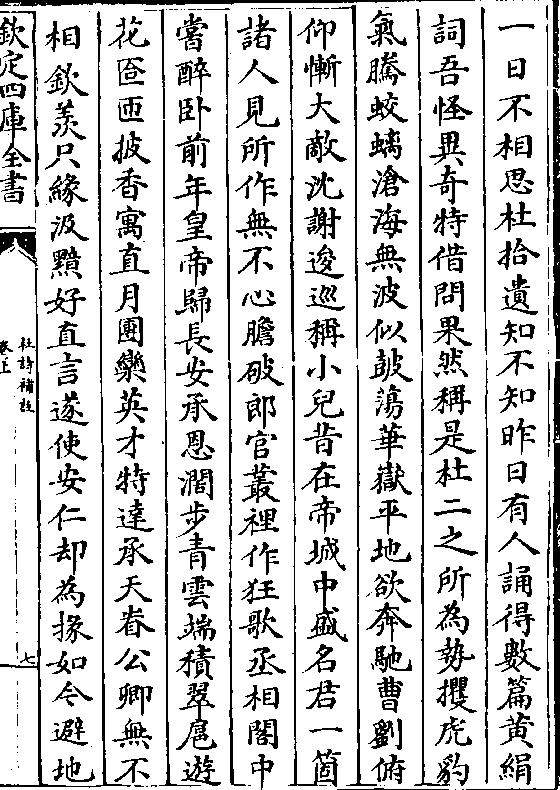 一日不相思杜拾遺知不知昨日有人誦得數篇黄絹
詞吾怪異奇特借問果然稱是杜二之所為勢攫虎豹
氣騰蛟螭滄海無波似皷蕩華嶽平地欲奔馳曹劉俯
仰慚大敵沈謝逡巡稱小兒昔在帝城中盛名君一箇
諸人見所作無不心膽破郎官叢裡作狂歌丞相閣中
嘗醉卧前年皇帝歸長安承恩濶步青雲端積翠扈遊
花匼匝披香寓直月團欒英才特達承天眷公卿無不
相欽羨只緣汲黯好直言遂使安仁却為掾如今避地
欽定四庫全書
杜詩補註
卷五
七